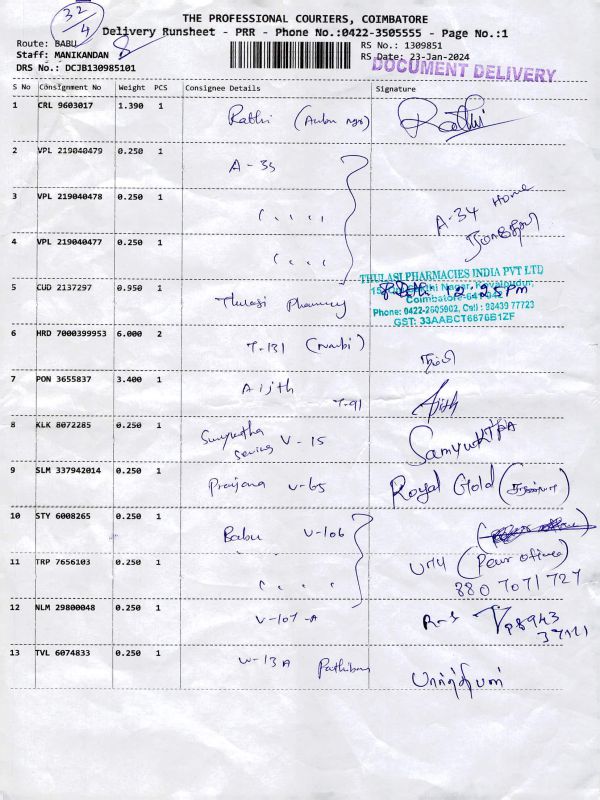 32/4
THE PROFESSIONAL COURIERS, COIMBATORE
Delivery Runsheet - PRR - Phone No.:0422-3505555 - Page No.:1
Route: BABU
Staff: MANIKANDAN
DRS No.: DCJB130985101
RS No.: 1309851
RS Date: 23-Jan-2024
DOCUMENT DELIVERY
S No Consignment No Weight PCS Consignee Details Signature
1 CRL 9603017 1.390 1 Rathi Rathi
2 VPL 219040479 0.250 1 A-33
3 VPL 219040478 0.250 1 A-34 Home
4 VPL 219040477 0.250 1
THULASI PHARMACIES INDIA PVT LTD
5 CUD 2137297 0.950 1 Thulasi Pharmacy 12.25Pm
Phone: 0422-2605902, Cell: 98439 77723
GST: 33AABCT6676B1ZF
6 HRD 7000399953 6.000 2 T-131 (Nambi) நம்பி
7 PON 3655837 3.400 1 Aijth T-91 Ajith
8 KLK 8072285 0.250 1 V-15 SAMYUKTPA
9 SLM 337942014 0.250 1 V-65 Royal Gold
10 STY 6008265 0.250 1 Babu V-106
11 TRP 7656103 0.250 1
880 7071 727
12 NLM 29800048 0.250 1 V-107-A
13 TVL 6074833 0.250 1 W-13A பார்த்திபன்